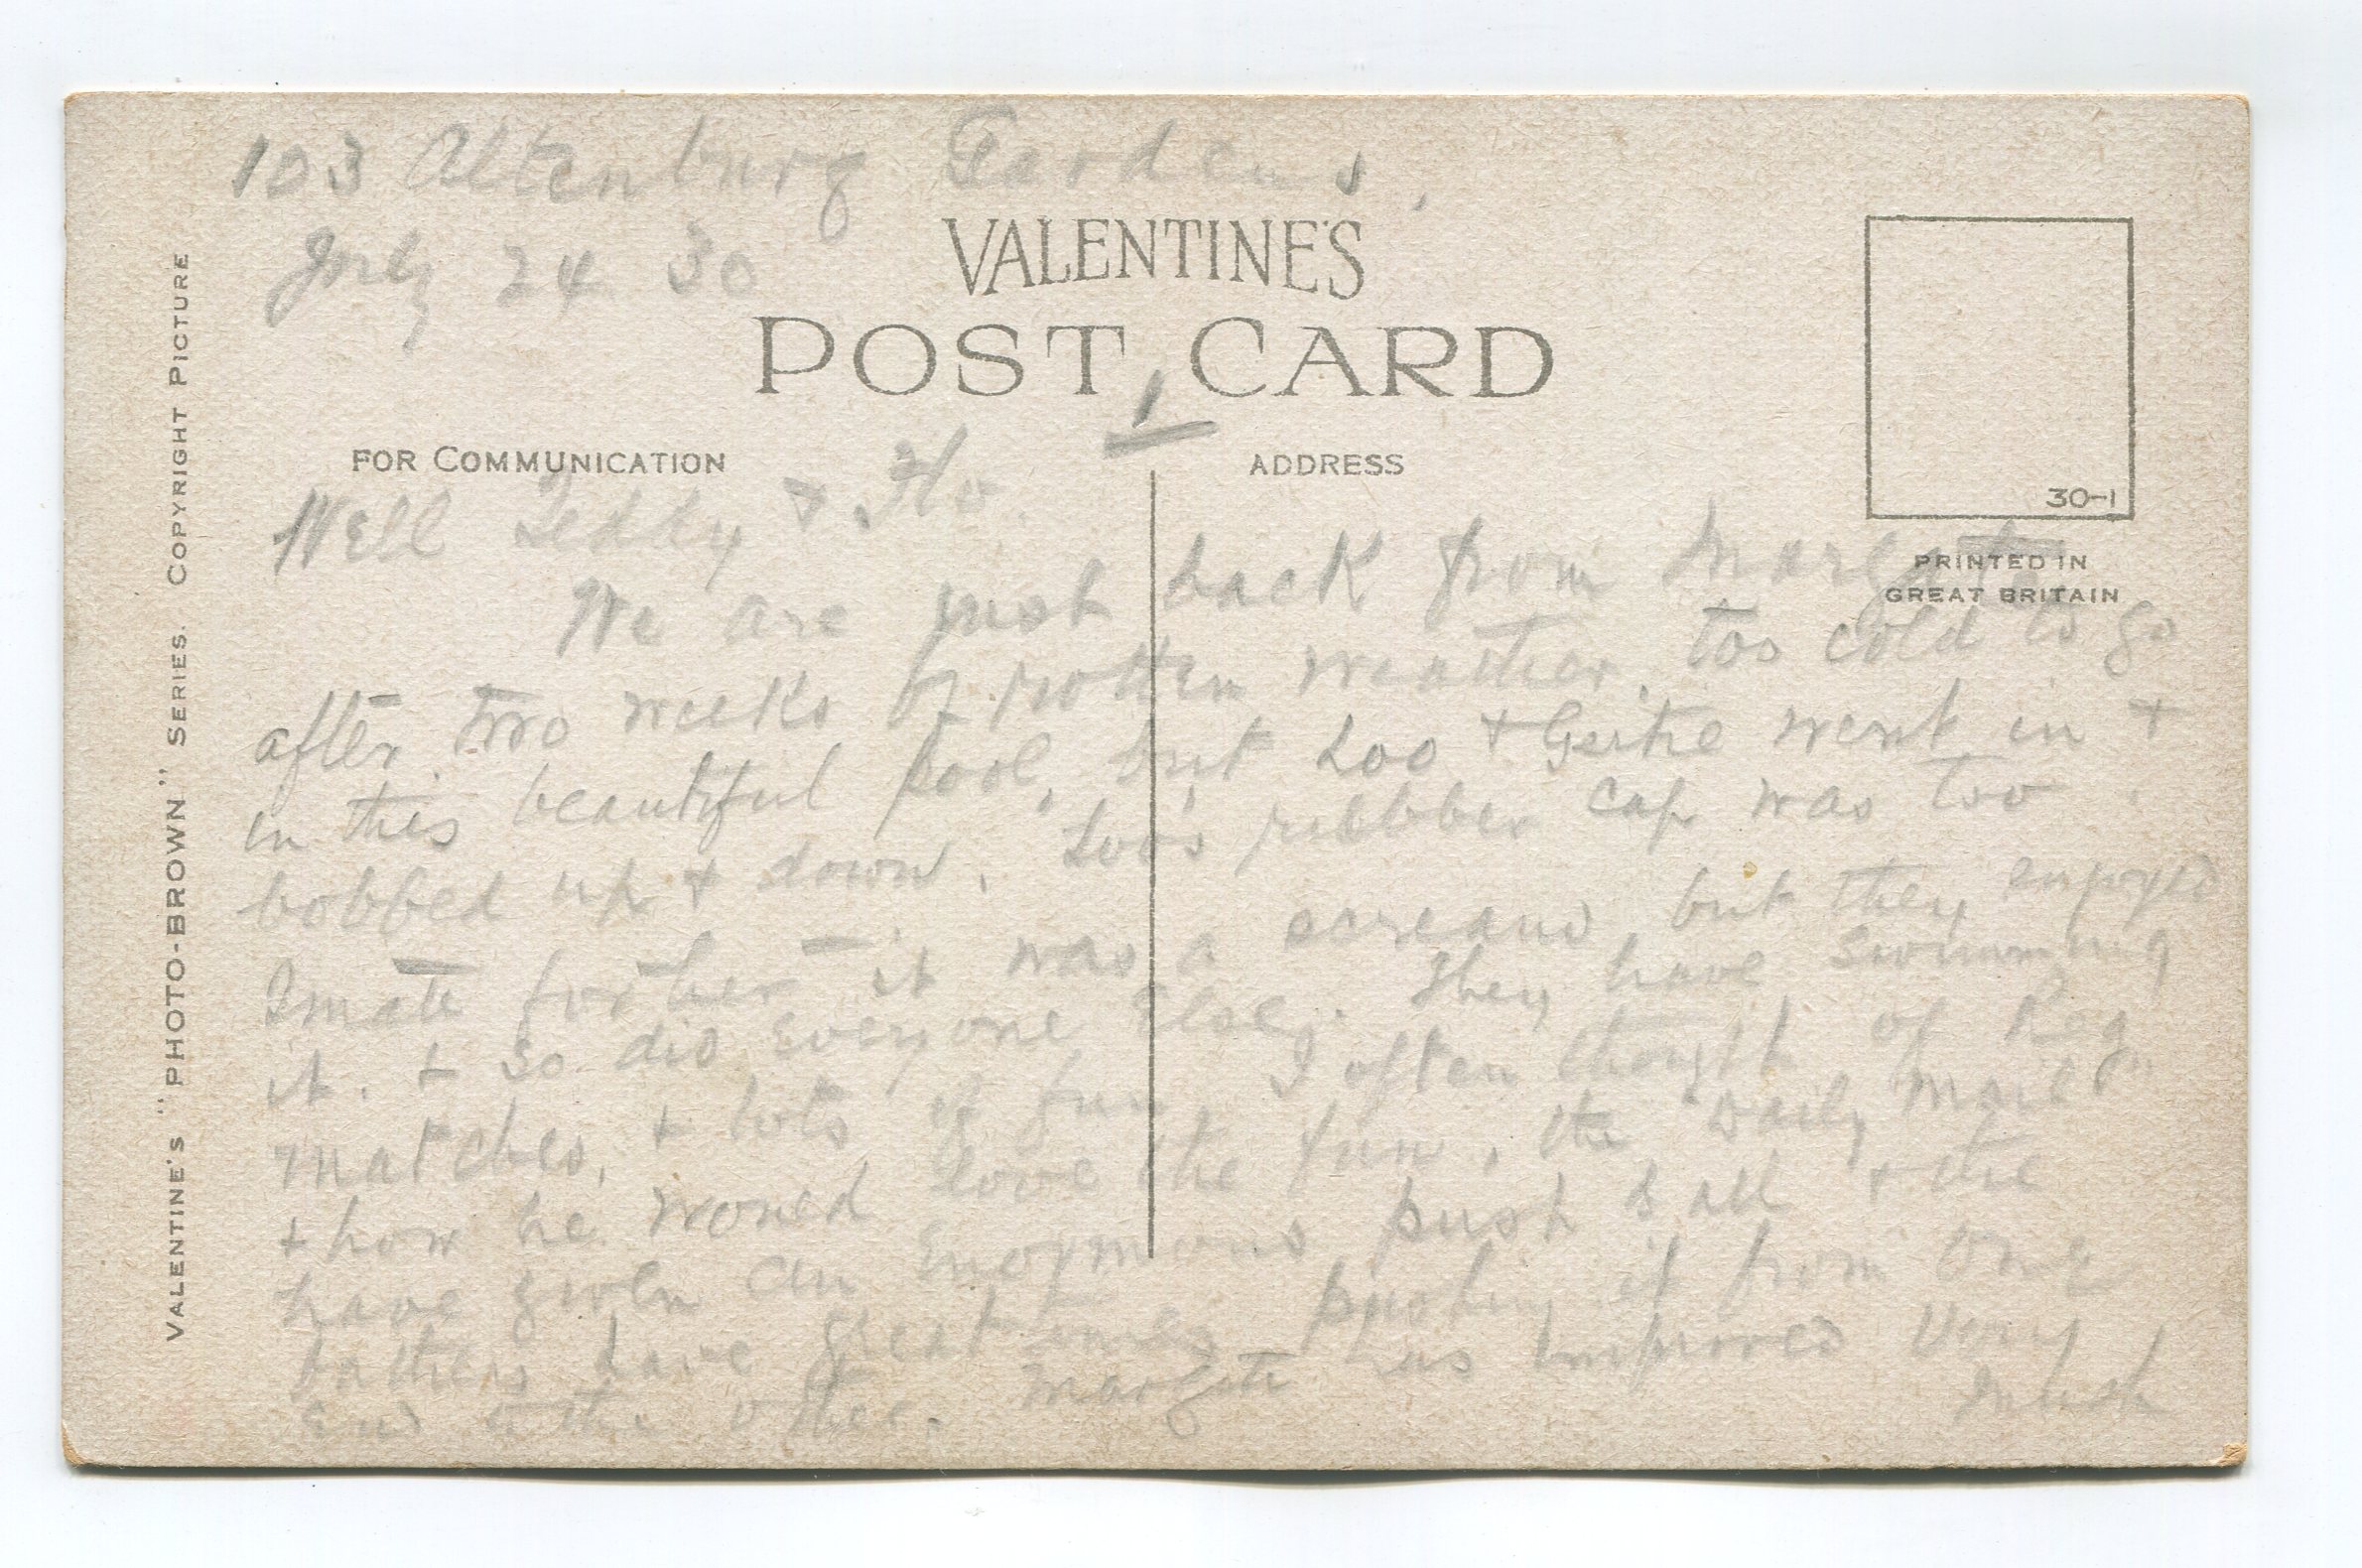 103 Altenburg Gardens,
July 24 30
VALENTINE'S
POST CARD
1
FOR COMMUNICATION
ADDRESS
30-1
PRINTED IN
GREAT BRITAIN
VALENTINE'S "PHOTO-BROWN" SERIES. COPYRIGHT PICTURE
Well Teddy & Flo.
We are just back from Margate
after two weeks of rotten weather, too cold to go
in this beautiful pool, but Loo & Gertie went in +
bobbed up & down. Loo's rubber cap was too
for her it was a scream, but they enjoyed
it. + so did everyone else. They have swimming
matches, + lots of fun I often thought of Reg.
+ how he would love the fun, the Daily Mail
have given an enormous push ball + the
bathers have great times pushing it from one
end to the other. Margate has improved very
much